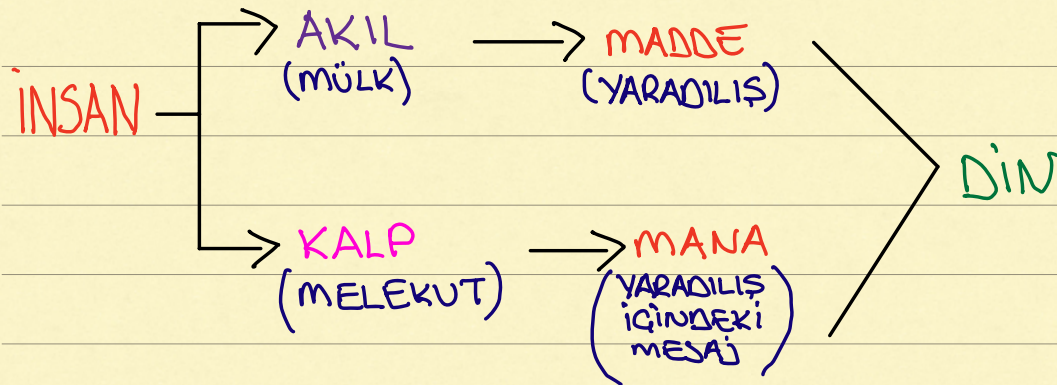 İNSAN
AKIL
(MÜLK)
MADDE
(YARADILIŞ)
KALP
(MELEKUT)
MANA
(YARADILIŞ
İÇİNDEKİ
MESAJ)
DİN